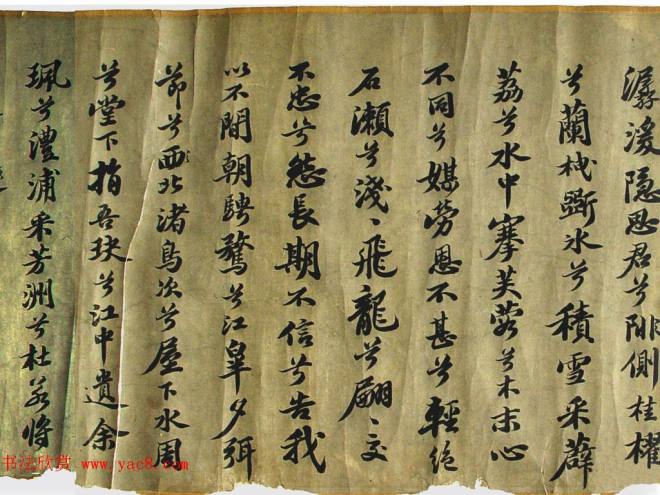 潺湲隐思君兮陫側桂櫂
兮蘭枻斲氷兮積雪采薜
荔兮水中搴芙蓉兮木末心
不同兮媒勞恩不甚兮輕絶
石瀨兮淺〻飛龍兮翩〻交
不忠兮怨長期不信兮告我
以不閒朝騁騖兮江皋夕弭
節兮西北渚鳥次兮屋下水周
兮堂下捐吾玦兮江中遺余
珮兮澧浦采芳洲兮杜若將
书法欣赏 www.yac8.com